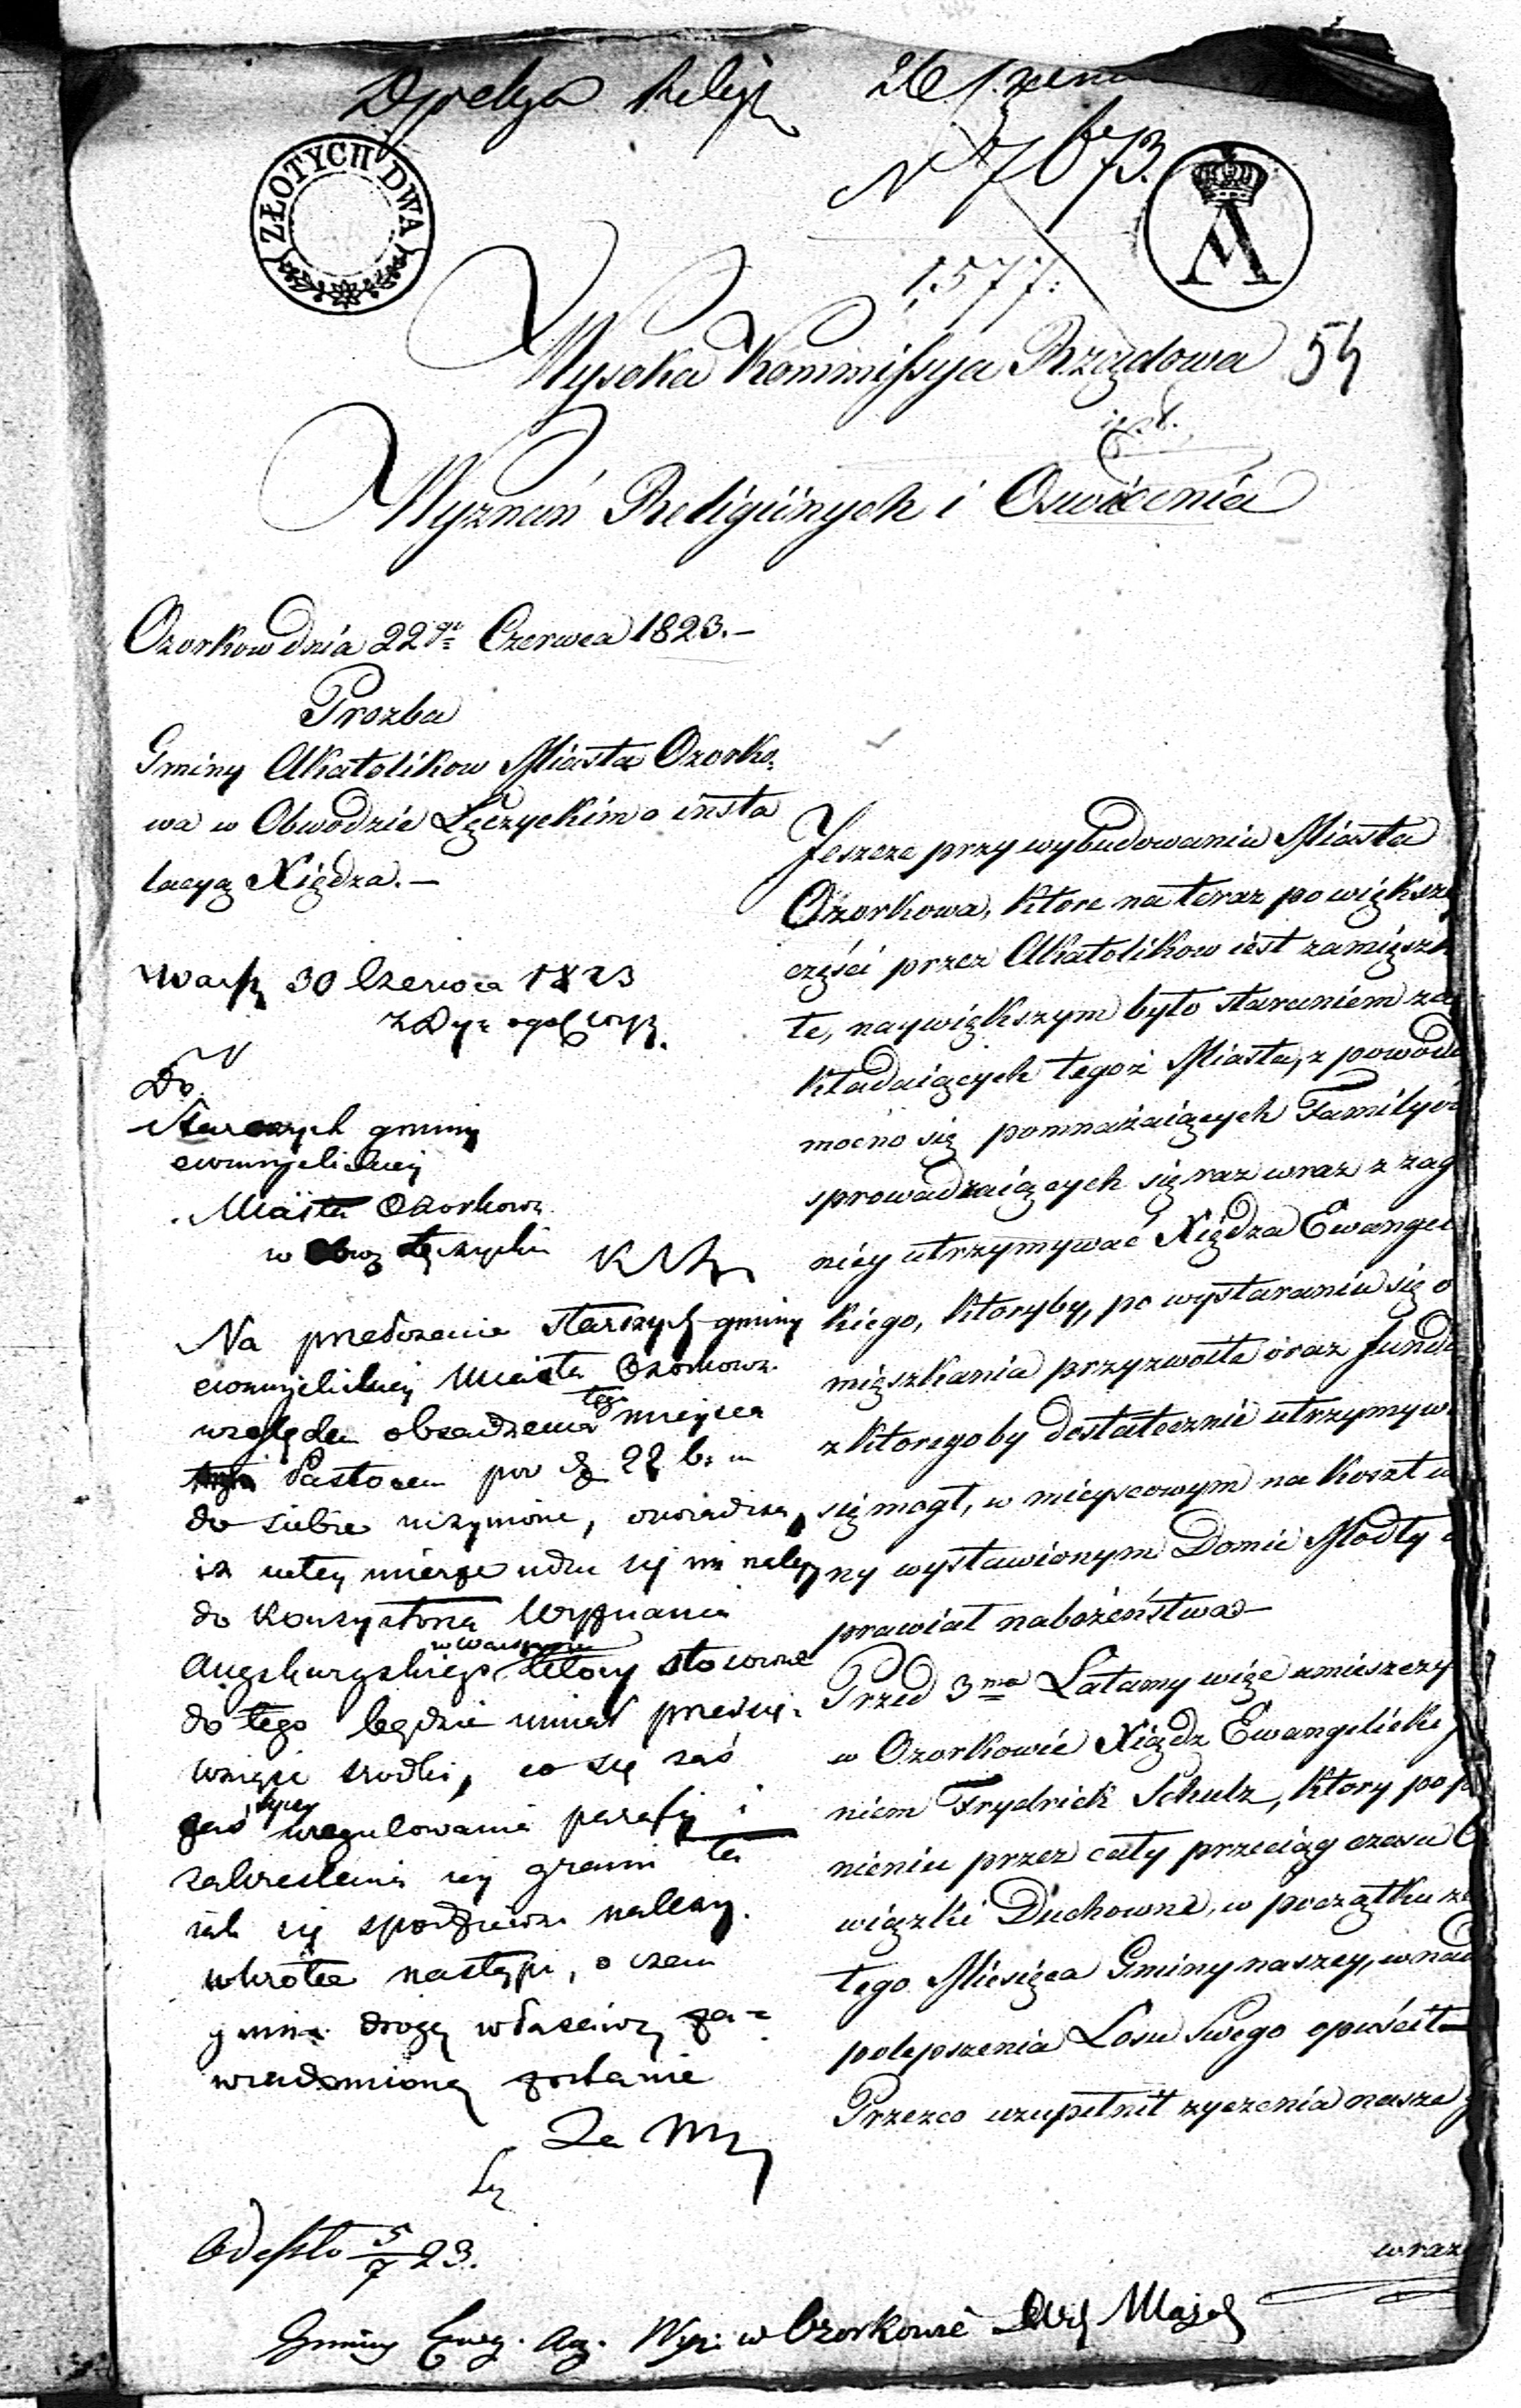 Dyrekya Religij 26 Czerw
N 7673.
ZŁOTYCH DWA
A
1,577:
54
Wysoka Kommissya Rządowa
Wyznań Religiinych i Oswiecenia
Ozorkow dnia 22go Czerwca 1823.—
Prozba
Gminy Akatolikow Miasta Ozorko,
wa w Obwodzie Łęczyckim o insta
lacyą Xiędza.—
Warsz 30 Czerwca 1823
Do
Starszych gminy
ewangelickiej
Miasta Ozorkowa
w Obwo Łęczyckim
Na przełozenie starszych gminy
ewangelickiej Miasta Ozorkowa
względem obsadzenia tego mieysca
Pastorem pod d 22 b. m
do siebie uczynione, oswiadcza,
iz w tey mierze udać się im należy
do Konsystorza Wyznania
Augsburgskiego w Warszawie który stosowne
do tego będzie umiał przedsię-
wziąść srodki, co się zaś
tycze uregulowania parafij i
zakreslenia iey granic ta
iak się spodziewać należy
wkrotce nastąpi, o czem
gmina drogą właściwą za=
wiadomioną zostanie
Jeszcze przy wybudowaniu Miasta
Ozorkowa, ktore na teraz po większe
części przez Akatolikow iest zamięszk
te, naywiększym było staraniem za
kładaiących tegoż Miasta, z powodu
mocno się pomnażaiących Familyó
sprowadzaiących się raz wraz z zag
nicy utrzymywać Xiędza Ewangel
kiego, ktoryby, po wystaraniu się o
mięszkania przyzwoite oraz fundu
z ktoregoby dostatecznie utrzymywa
się mogł, w mieyscowym na koszt w
ny wystawionym Domie Modły
prawiał nabożeństwa—
Przed 3ma Latamy więc umieszczy
w Ozorkowie Xiądz Ewangelicki
niem Frydrick Schulz, ktory po p
nieniu przez cały przeciąg czasu
wiązki Duchowne, w początku ze
tego Miesiąca Gminy naszey, w nad
polepszenia Losu Swego opuścił—
Przezco uzupełnił zyczenia nasze
wraz
Odeszło 5/7 23.
Gminy Ewg. Aug. Wyz. w Ozorkowie